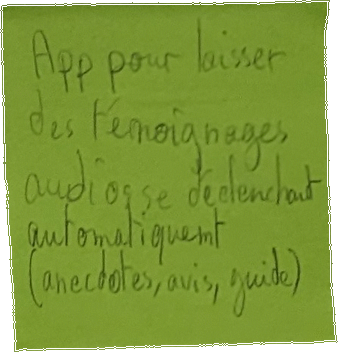 App pour laisser
des témoignages
audios se déclenchant
automatiquemt
(anecdotes, avis, guide)